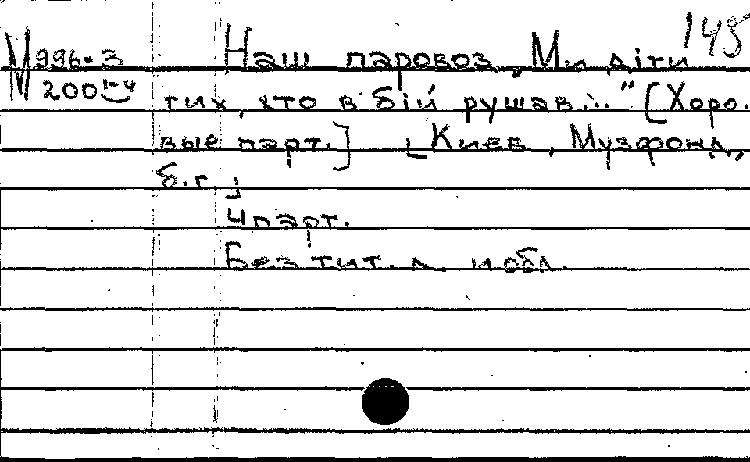 149
М 996-3 Наш паровоз „Ми діти
2001-4 тих, хто в бій рушав..." [Хоро-
вые парт.] [Киев, Музфонд,
б.г.]
4 парт.
Без тит. л. и обл.